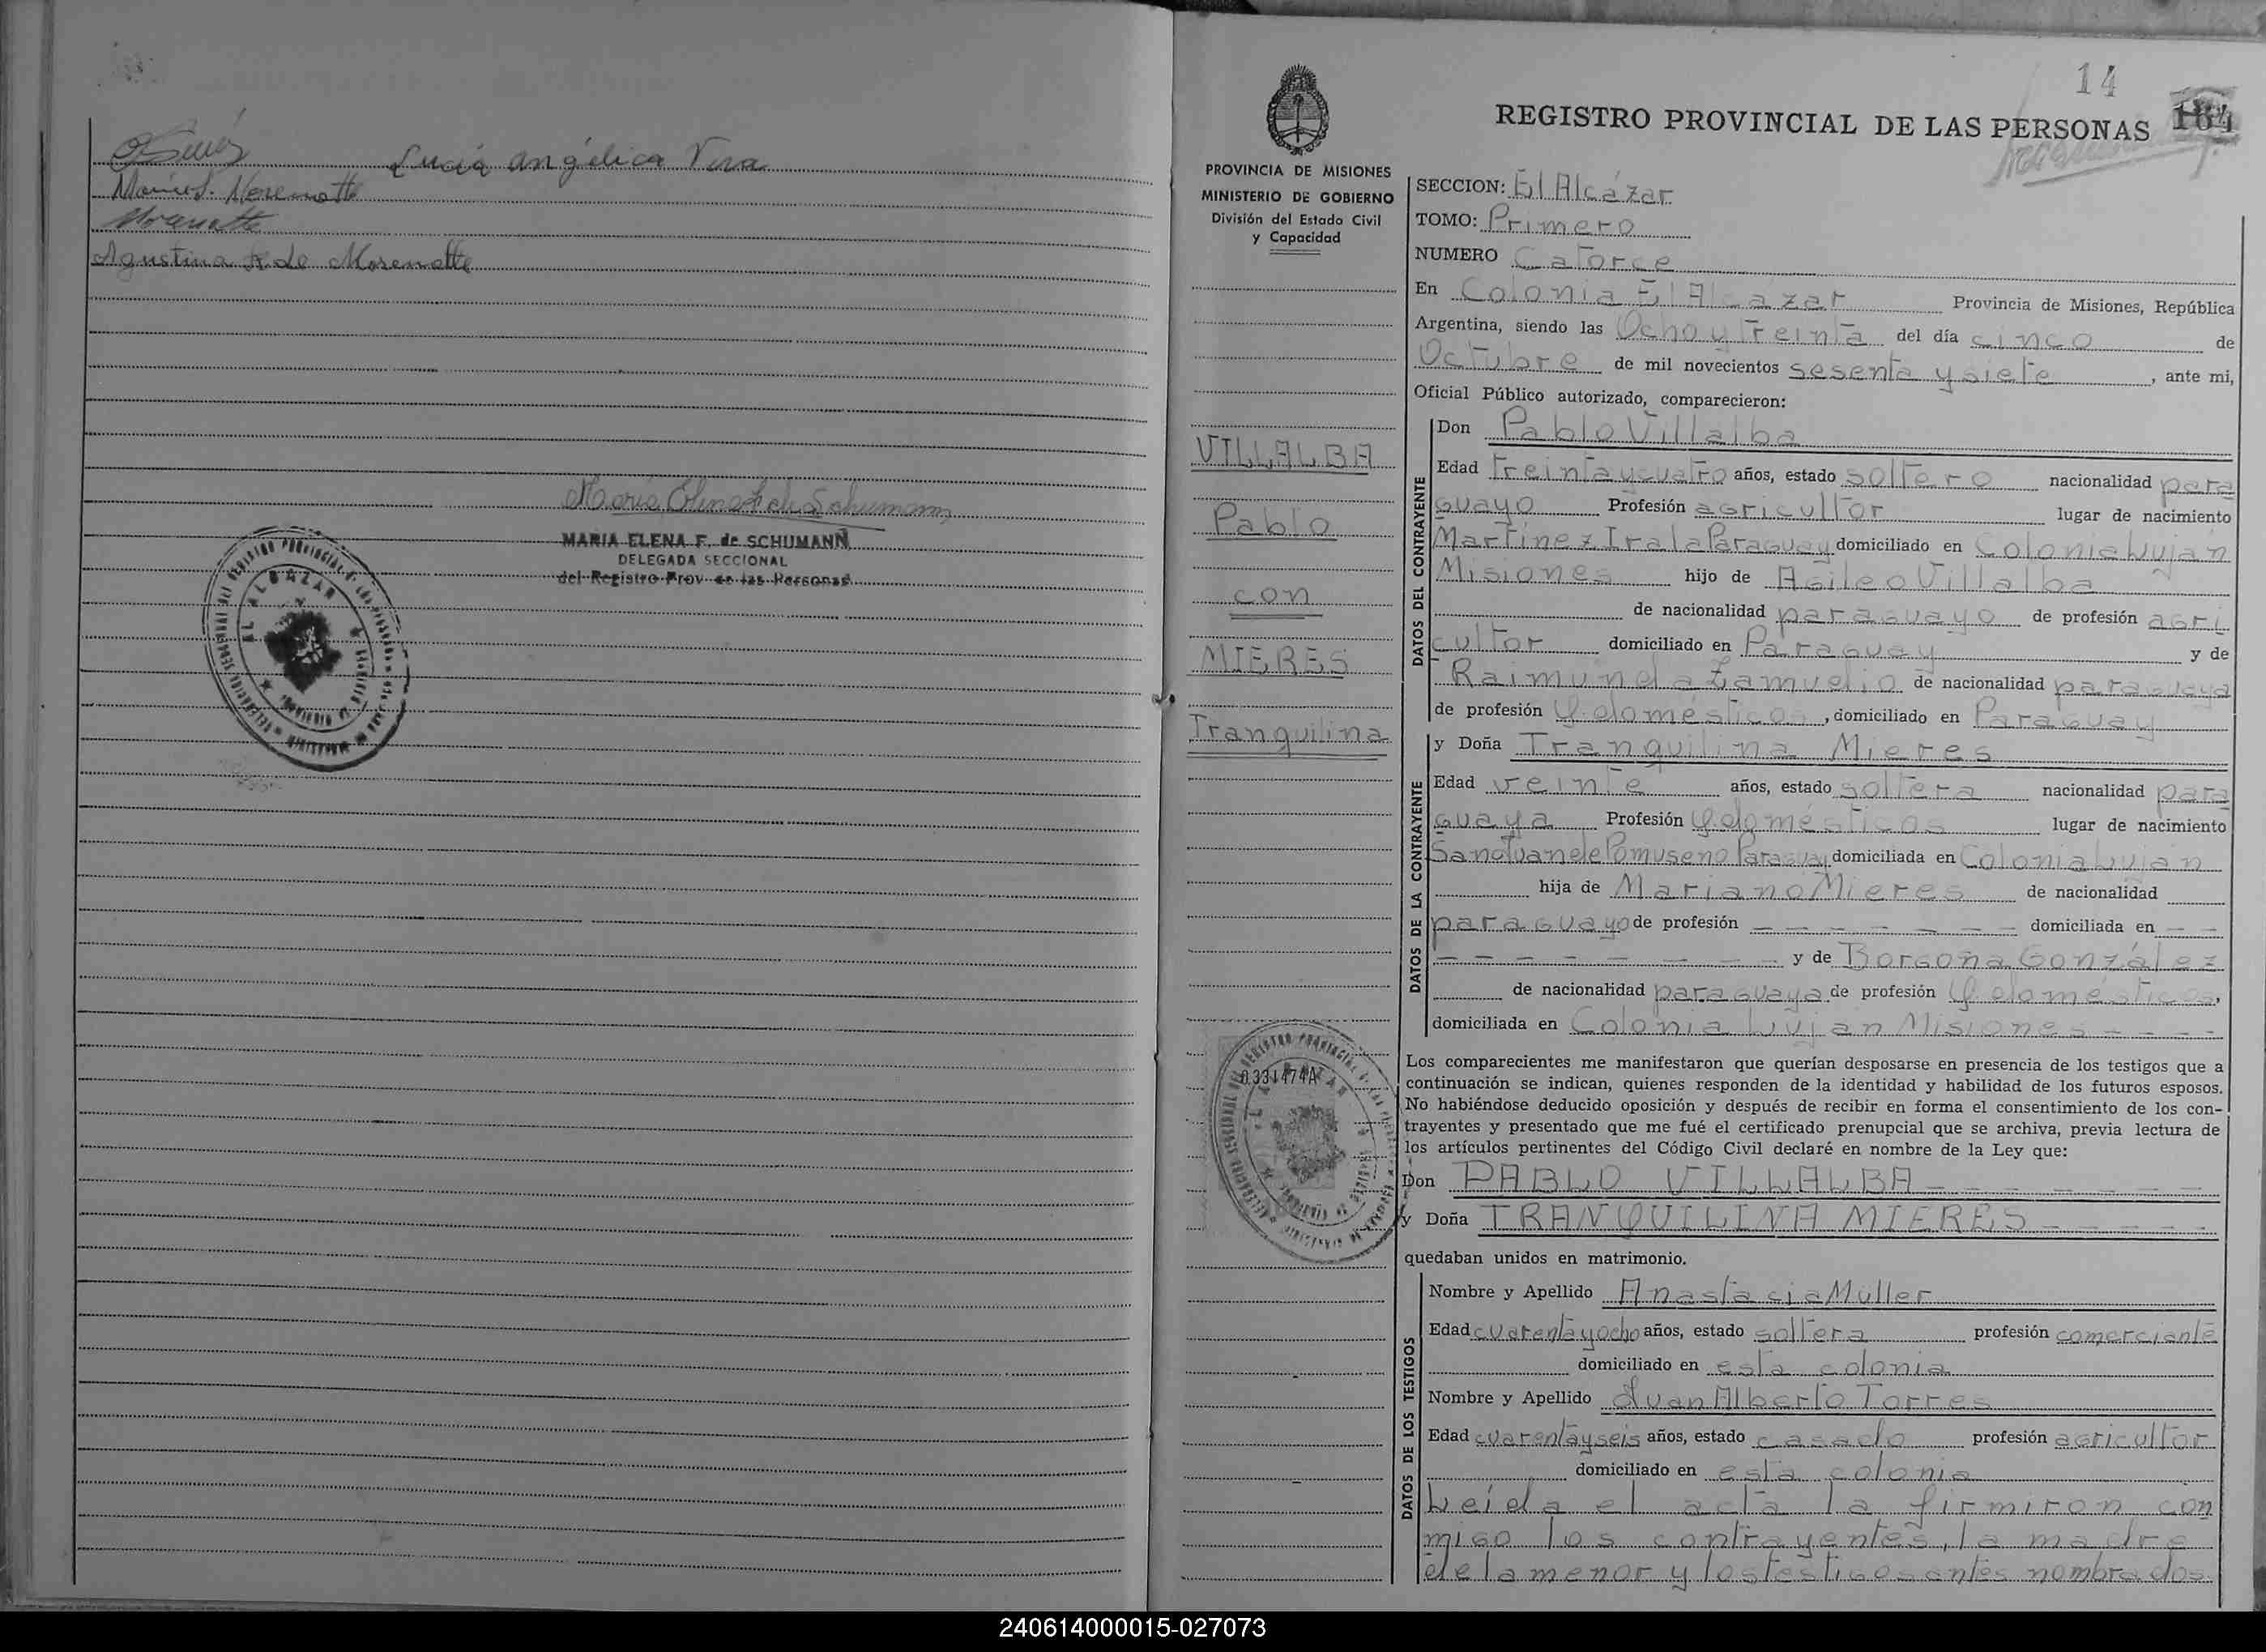 Lucía Angélica Vera
Agustina F. de Morenotte
María Elena F. de Schumann
MARIA ELENA F. de SCHUMANN
DELEGADA SECCIONAL
del Registro Prov de las Personas
14
REGISTRO PROVINCIAL DE LAS PERSONAS 184
PROVINCIA DE MISIONES
MINISTERIO DE GOBIERNO
División del Estado Civil
y Capacidad
VILLALBA
Pablo
con
MIERES
Tranquilina
0331474A
SECCION: El Alcázar
TOMO: Primero
NUMERO Catorce
En Colonia El Alcazar Provincia de Misiones, República
Argentina, siendo las Ocho y Treinta del día cinco de
Octubre de mil novecientos sesenta y siete, ante mi,
Oficial Público autorizado, comparecieron:
DATOS DEL CONTRAYENTE
Don Pablo Villalba
Edad treinta y cuatro años, estado soltero nacionalidad para
guayo Profesión agricultor lugar de nacimiento
Martinez Irala Paraguay domiciliado en Colonia Luján
Misiones hijo de Agileo Villalba
de nacionalidad paraguayo de profesión agri
cultor domiciliado en Paraguay y de
Raimunda Zamudio de nacionalidad paraguaya
de profesión Q. domésticos, domiciliado en Paraguay
DATOS DE LA CONTRAYENTE
y Doña Tranquilina Mieres
Edad veinte años, estado soltera nacionalidad para
guaya Profesión Q. domésticos lugar de nacimiento
San Juan de Pomuseno Paraguay domiciliada en Colonia Luján
hija de Mariano Mieres de nacionalidad
paraguayo de profesión - - - - - - - domiciliada en - -
- - - - - - - - - y de Borgoña González
de nacionalidad paraguaya de profesión Q. domésticos,
domiciliada en Colonia Lujan Misiones - - - -
Los comparecientes me manifestaron que querían desposarse en presencia de los testigos que a
continuación se indican, quienes responden de la identidad y habilidad de los futuros esposos.
No habiéndose deducido oposición y después de recibir en forma el consentimiento de los con-
trayentes y presentado que me fué el certificado prenupcial que se archiva, previa lectura de
los artículos pertinentes del Código Civil declaré en nombre de la Ley que:
Don PABLO VILLALBA - - - - - - -
y Doña TRANQUILINA MIERES - - - - -
quedaban unidos en matrimonio.
DATOS DE LOS TESTIGOS
Nombre y Apellido Anastacia Muller
Edad cuarenta y ocho años, estado soltera profesión comerciante
domiciliado en esta colonia
Nombre y Apellido Juan Alberto Torres
Edad cuarenta y seis años, estado casado profesión agricultor
domiciliado en esta colonia
Leída el acta la firmiron con
migo los contrayentes, la madre
de la menor y los testigos antes nombrados
240614000015-027073